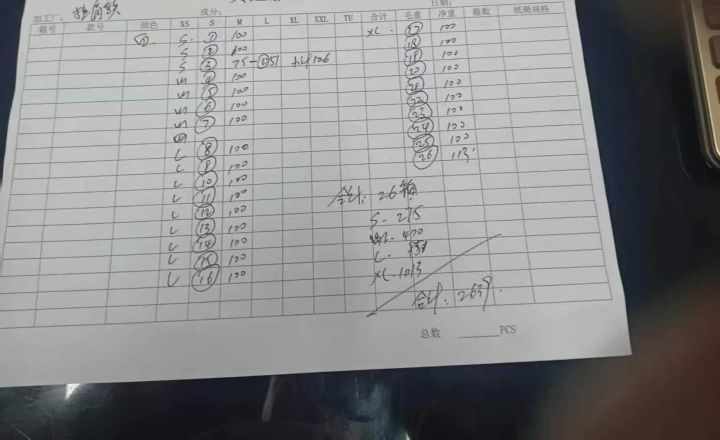 加工厂： 成分： 日期：
箱号 款号 颜色 XS S M L XL XXL TU 合计 毛重 净重 箱数 纸箱规格
S. ① 100 XL - ⑰ 100
S ② 100 ⑱ 100
S ③ 75 — L 51 126 ⑲ 100
M ④ 100 ⑳ 100
M ⑤ 100 ㉑ 100
M ⑥ 100 ㉒ 100
M ⑦ 100 ㉓ 100
㉔ 100
L ⑧ 100 ㉕ 100
L ⑨ 100 ㉖ 113
L ⑩ 100
L ⑪ 100 合计: 26箱
L ⑫ 100 S - 275
L ⑬ 100 M - 400
L ⑭ 100 L - 951
L ⑮ 100 XL - 1013
L ⑯ 100
合计: 2639
总数 ______PCS